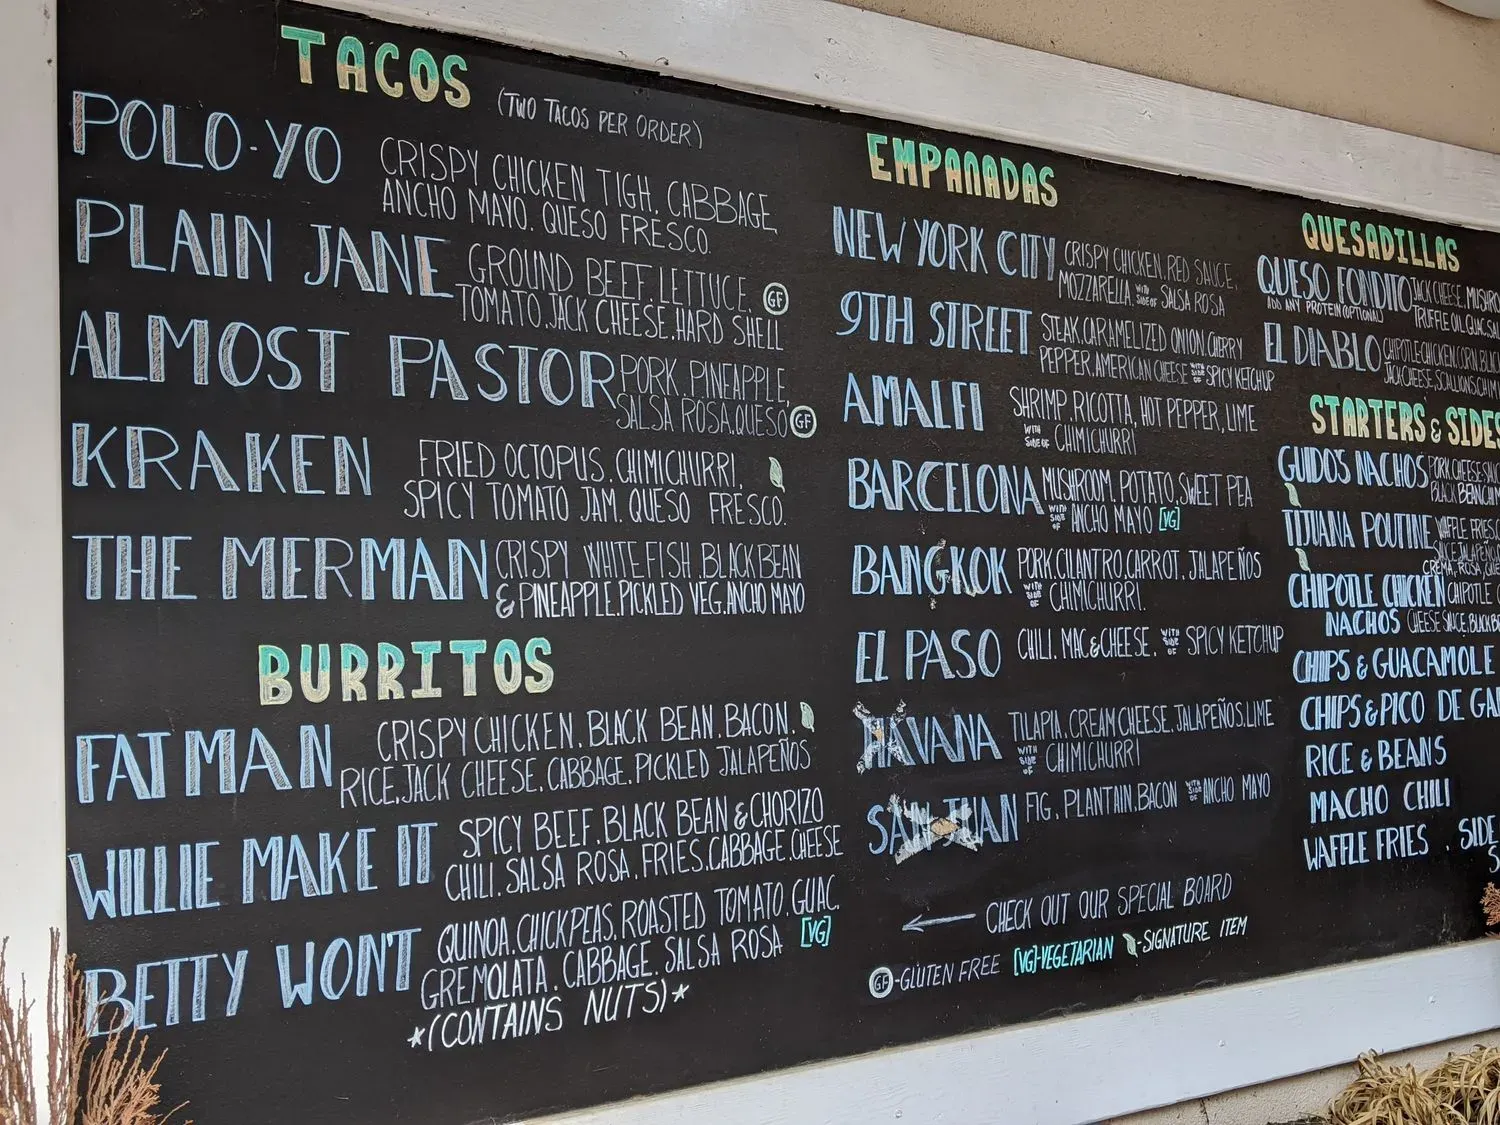 TACOS
(TWO TACOS PER ORDER)
POLO-YO
CRISPY CHICKEN TIGH. CABBAGE,
ANCHO MAYO. QUESO FRESCO.
PLAIN JANE
GROUND BEEF. LETTUCE. GF
TOMATO. JACK CHEESE. HARD SHELL
ALMOST PASTOR
PORK. PINEAPPLE,
SALSA ROSA. QUESO GF
KRAKEN
FRIED OCTOPUS. CHIMICHURRI,
SPICY TOMATO JAM. QUESO FRESCO.
THE MERMAN
CRISPY WHITE FISH. BLACK BEAN
& PINEAPPLE. PICKLED VEG. ANCHO MAYO
BURRITOS
FATMAN
CRISPY CHICKEN. BLACK BEAN. BACON.
RICE. JACK CHEESE. CABBAGE. PICKLED JALAPEÑOS
WILLIE MAKE IT
SPICY BEEF. BLACK BEAN & CHORIZO
CHILI. SALSA ROSA. FRIES. CABBAGE. CHEESE
BETTY WON'T
QUINOA. CHICKPEAS. ROASTED TOMATO. GUAC.
GREMOLATA. CABBAGE. SALSA ROSA [VG]
*(CONTAINS NUTS)*
EMPANADAS
NEW YORK CITY
CRISPY CHICKEN. RED SAUCE.
MOZZARELLA. WITH SIDE OF SALSA ROSA
9TH STREET
STEAK. CARAMELIZED ONION. CHERRY
PEPPER. AMERICAN CHEESE WITH SIDE OF SPICY KETCHUP
AMALFI
SHRIMP. RICOTTA, HOT PEPPER, LIME
WITH SIDE OF CHIMICHURRI
BARCELONA
MUSHROOM. POTATO, SWEET PEA
WITH SIDE OF ANCHO MAYO [VG]
BANGKOK
PORK. CILANTRO. CARROT. JALAPEÑOS
WITH SIDE OF CHIMICHURRI.
EL PASO
CHILI. MAC & CHEESE. WITH SIDE OF SPICY KETCHUP
HAVANA
TILAPIA. CREAM CHEESE. JALAPEÑOS. LIME
WITH SIDE OF CHIMICHURRI
SAN JUAN
FIG. PLANTAIN. BACON WITH SIDE OF ANCHO MAYO
CHECK OUT OUR SPECIAL BOARD
GF-GLUTEN FREE [VG]-VEGETARIAN -SIGNATURE ITEM
QUESADILLAS
QUESO FONDITO
ADD ANY PROTEIN (OPTIONAL)
JACK CHEESE. MUSHRO
TRUFFLE OIL. GUAC. SAL
EL DIABLO
CHIPOTLE CHICKEN. CORN. BLACK
JACK CHEESE, SCALLIONS. CHIM
STARTERS & SIDES
GUIDO'S NACHOS
PORK. CHEESE SAUC
BLACK BEAN
TIJUANA POUTINE
WAFFLE FRIES. C
SAUCE. JALAPEÑO
CREMA, ROSA, QUE
CHIPOTLE CHICKEN
NACHOS
CHIPOTLE C
CHEESE SAUCE, BLACK B
CHIPS & GUACAMOLE
CHIPS & PICO DE GAL
RICE & BEANS
MACHO CHILI
WAFFLE FRIES . SIDE
S